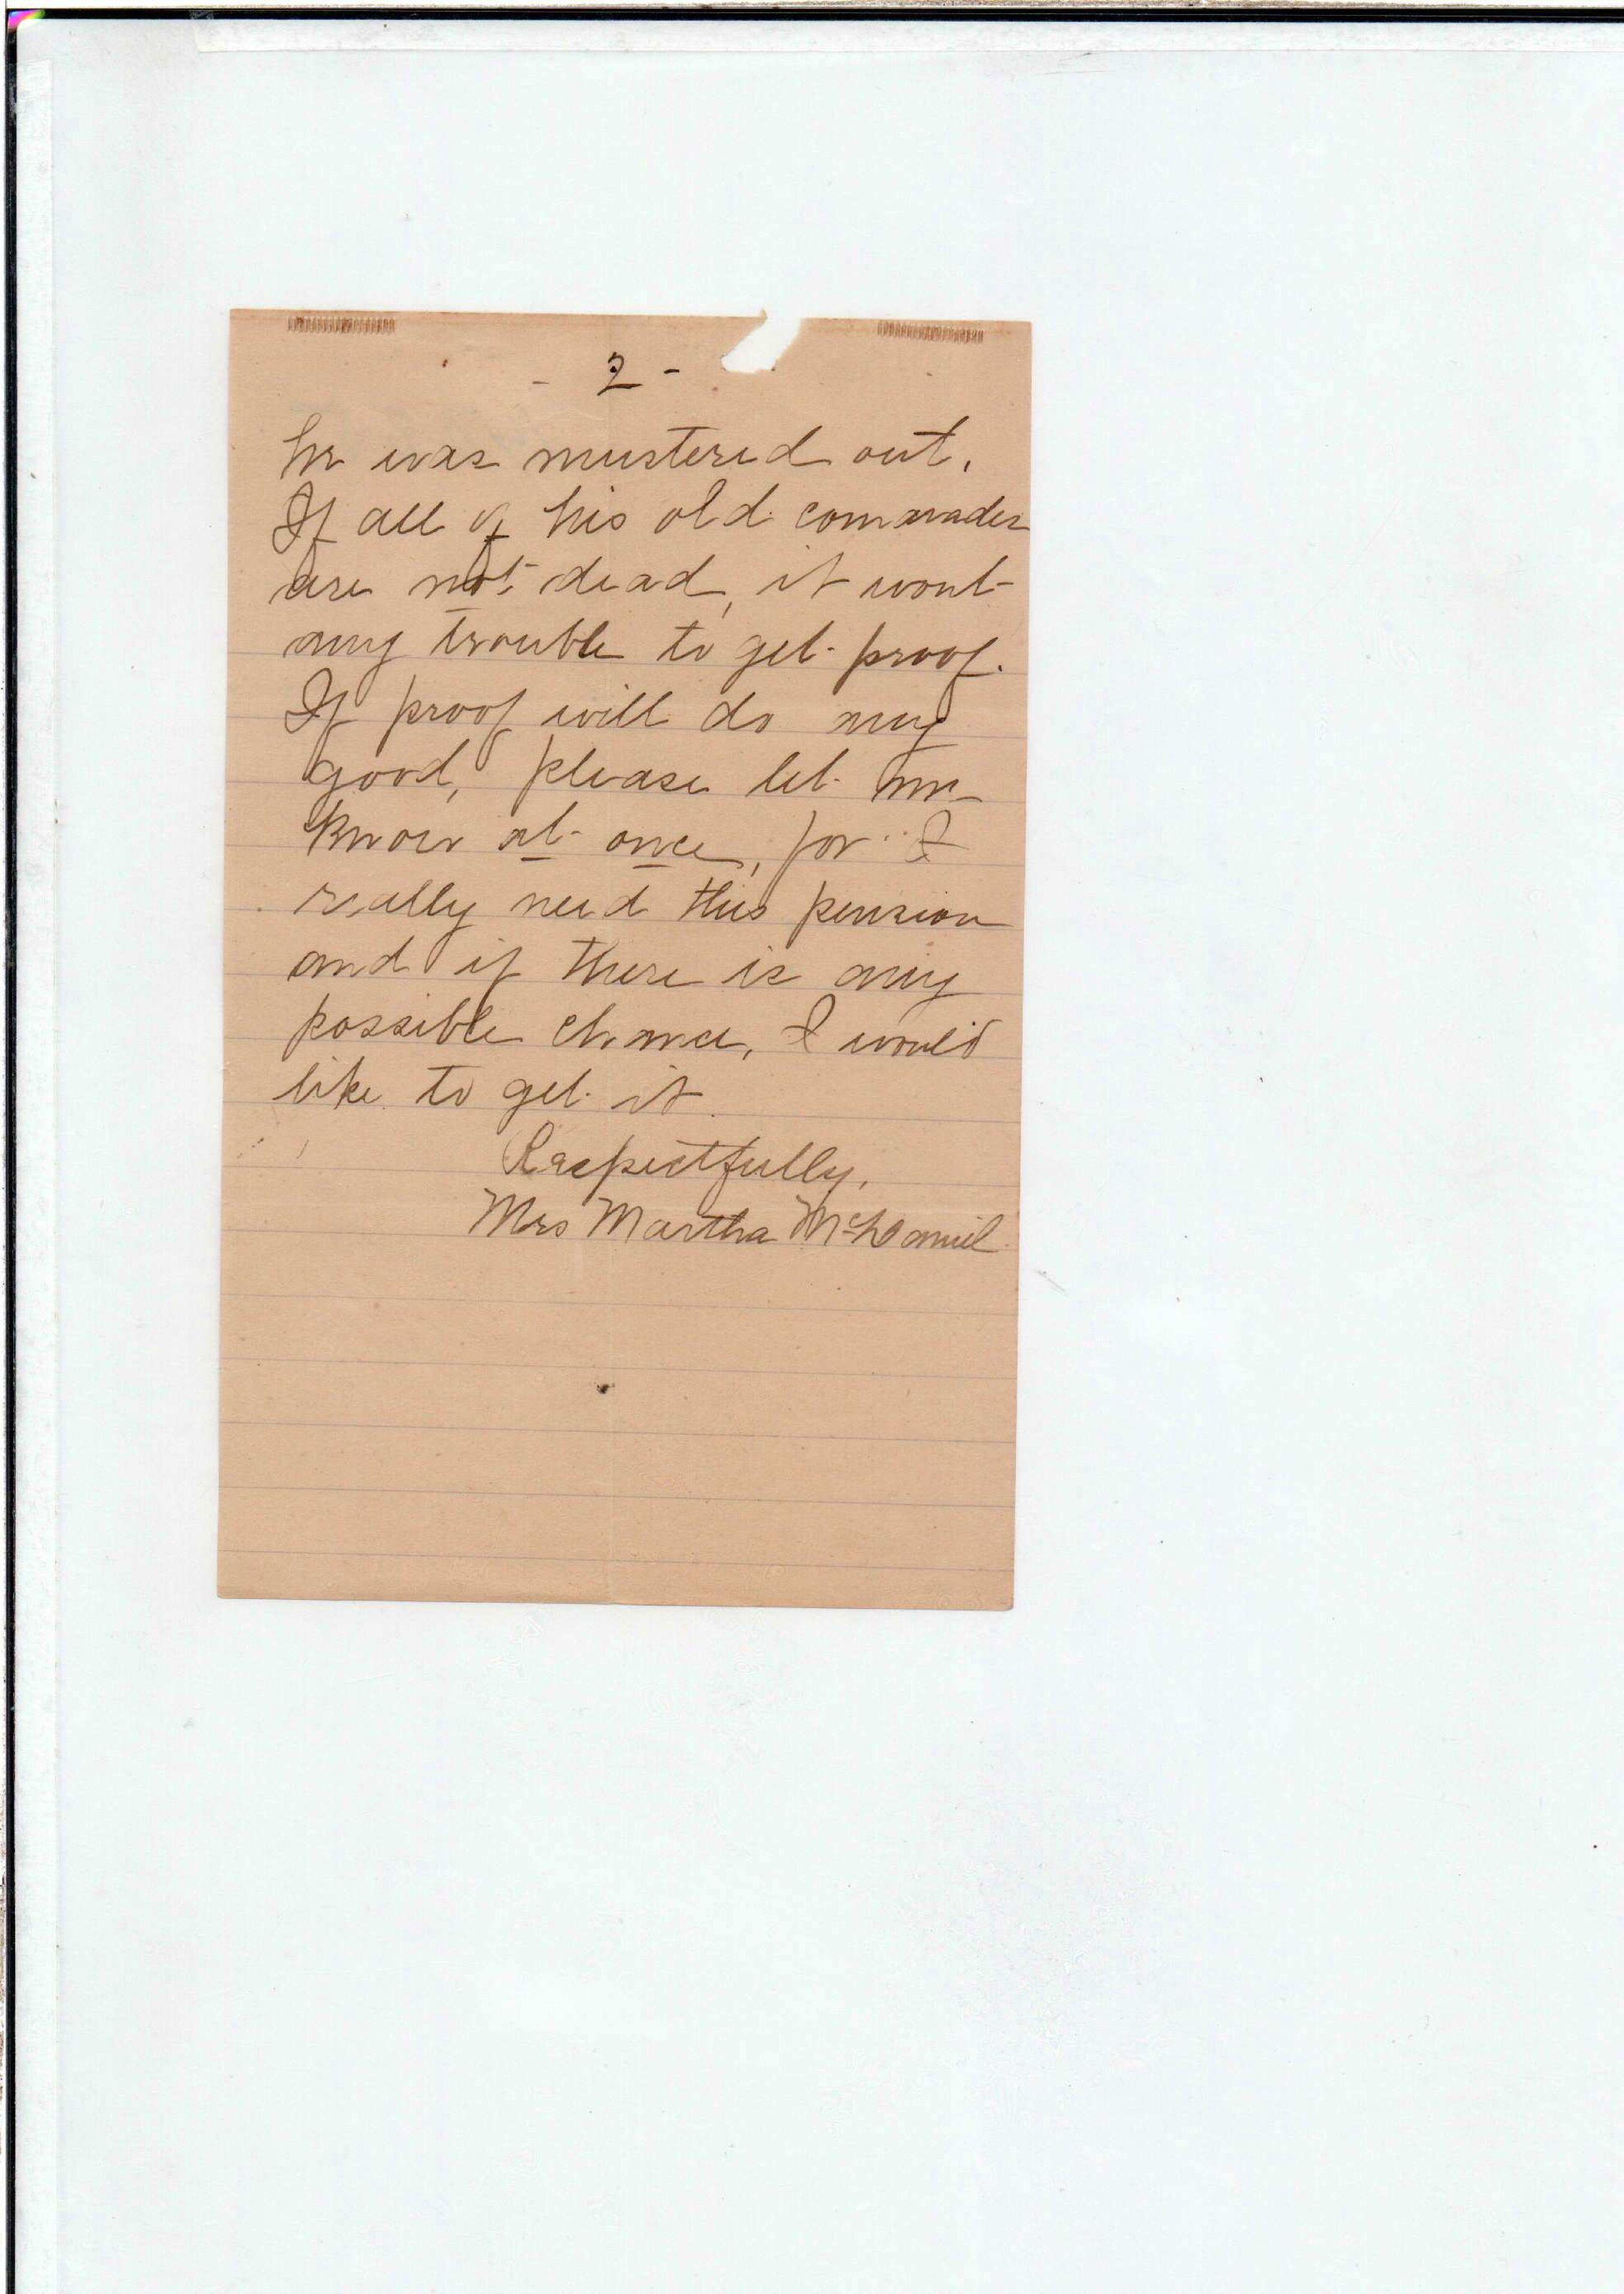 - 2 -
he was mustered out.
If all of his old commrades
are not dead, it wont
any trouble to get proof.
If proof will do any
good, please let me
know at once, for I
really need this pension
and if there is any
possible chance, I would
like to get it.
Respectfully,
Mrs Martha McDaniel